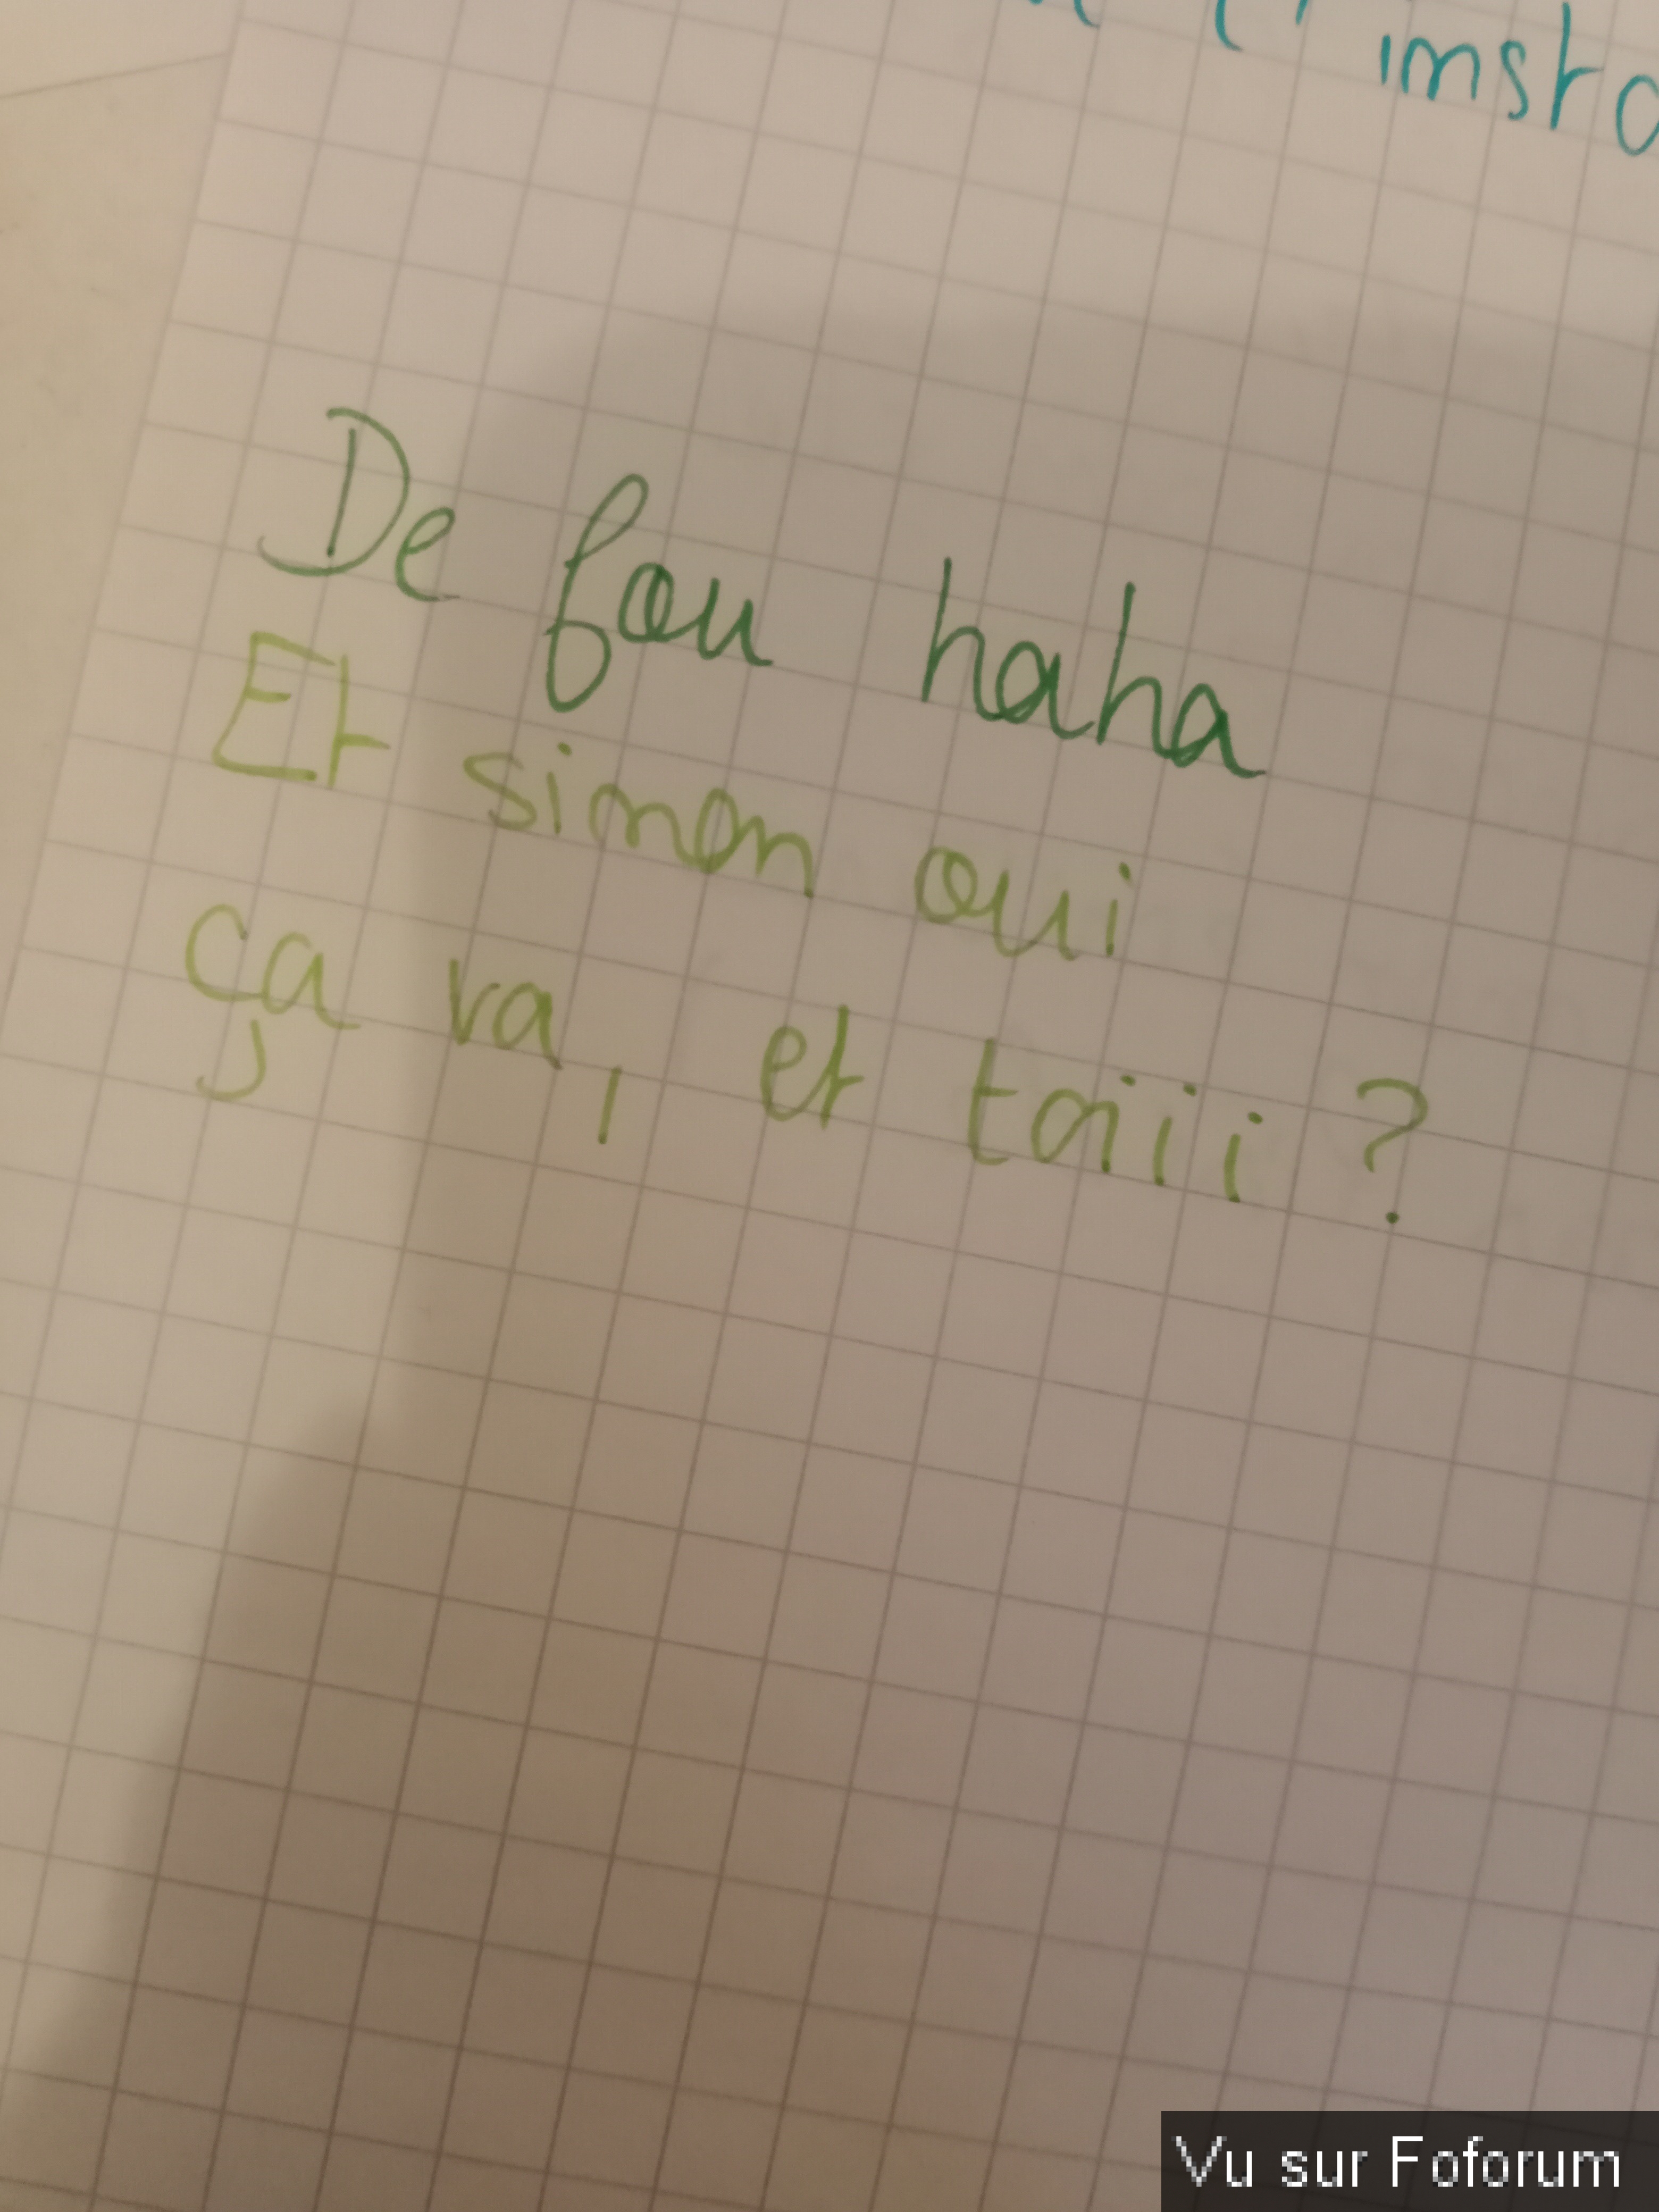 insta
De fou haha
Et sinon oui
ça va, et toiii ?
Vu sur Foforum